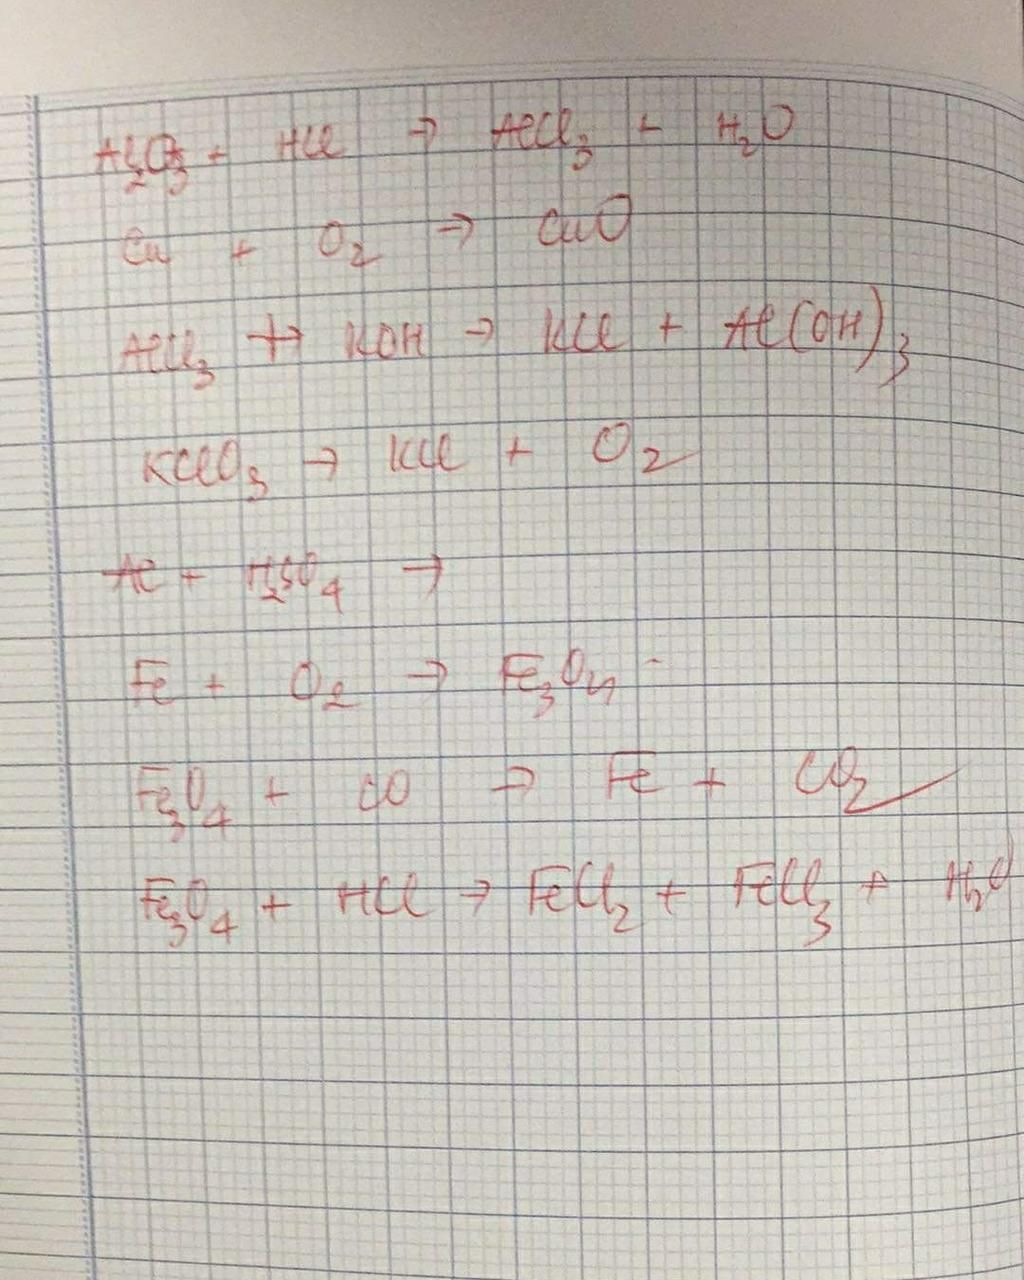 Al₂O₃ + HCl → AlCl₃ + H₂O
Cu + O₂ → CuO
AlCl₃ + KOH → KCl + Al(OH)₃
KClO₃ → KCl + O₂
Al + H₂SO₄ →
Fe + O₂ → Fe₃O₄
Fe₃O₄ + CO → Fe + CO₂
Fe₃O₄ + HCl → FeCl₂ + FeCl₃ + H₂O